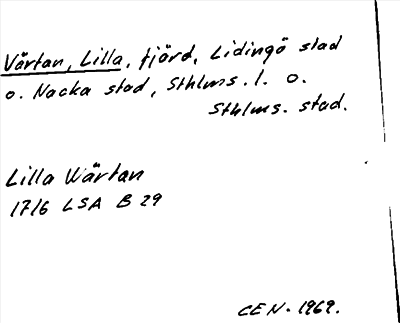 Värtan, Lilla, fjörd, Lidingö stad
o. Nacka stad, Sthlms. l. o.
Sthlms. stad.
Lilla Wärtan
1716 LSA B 29
CEN. 1969.